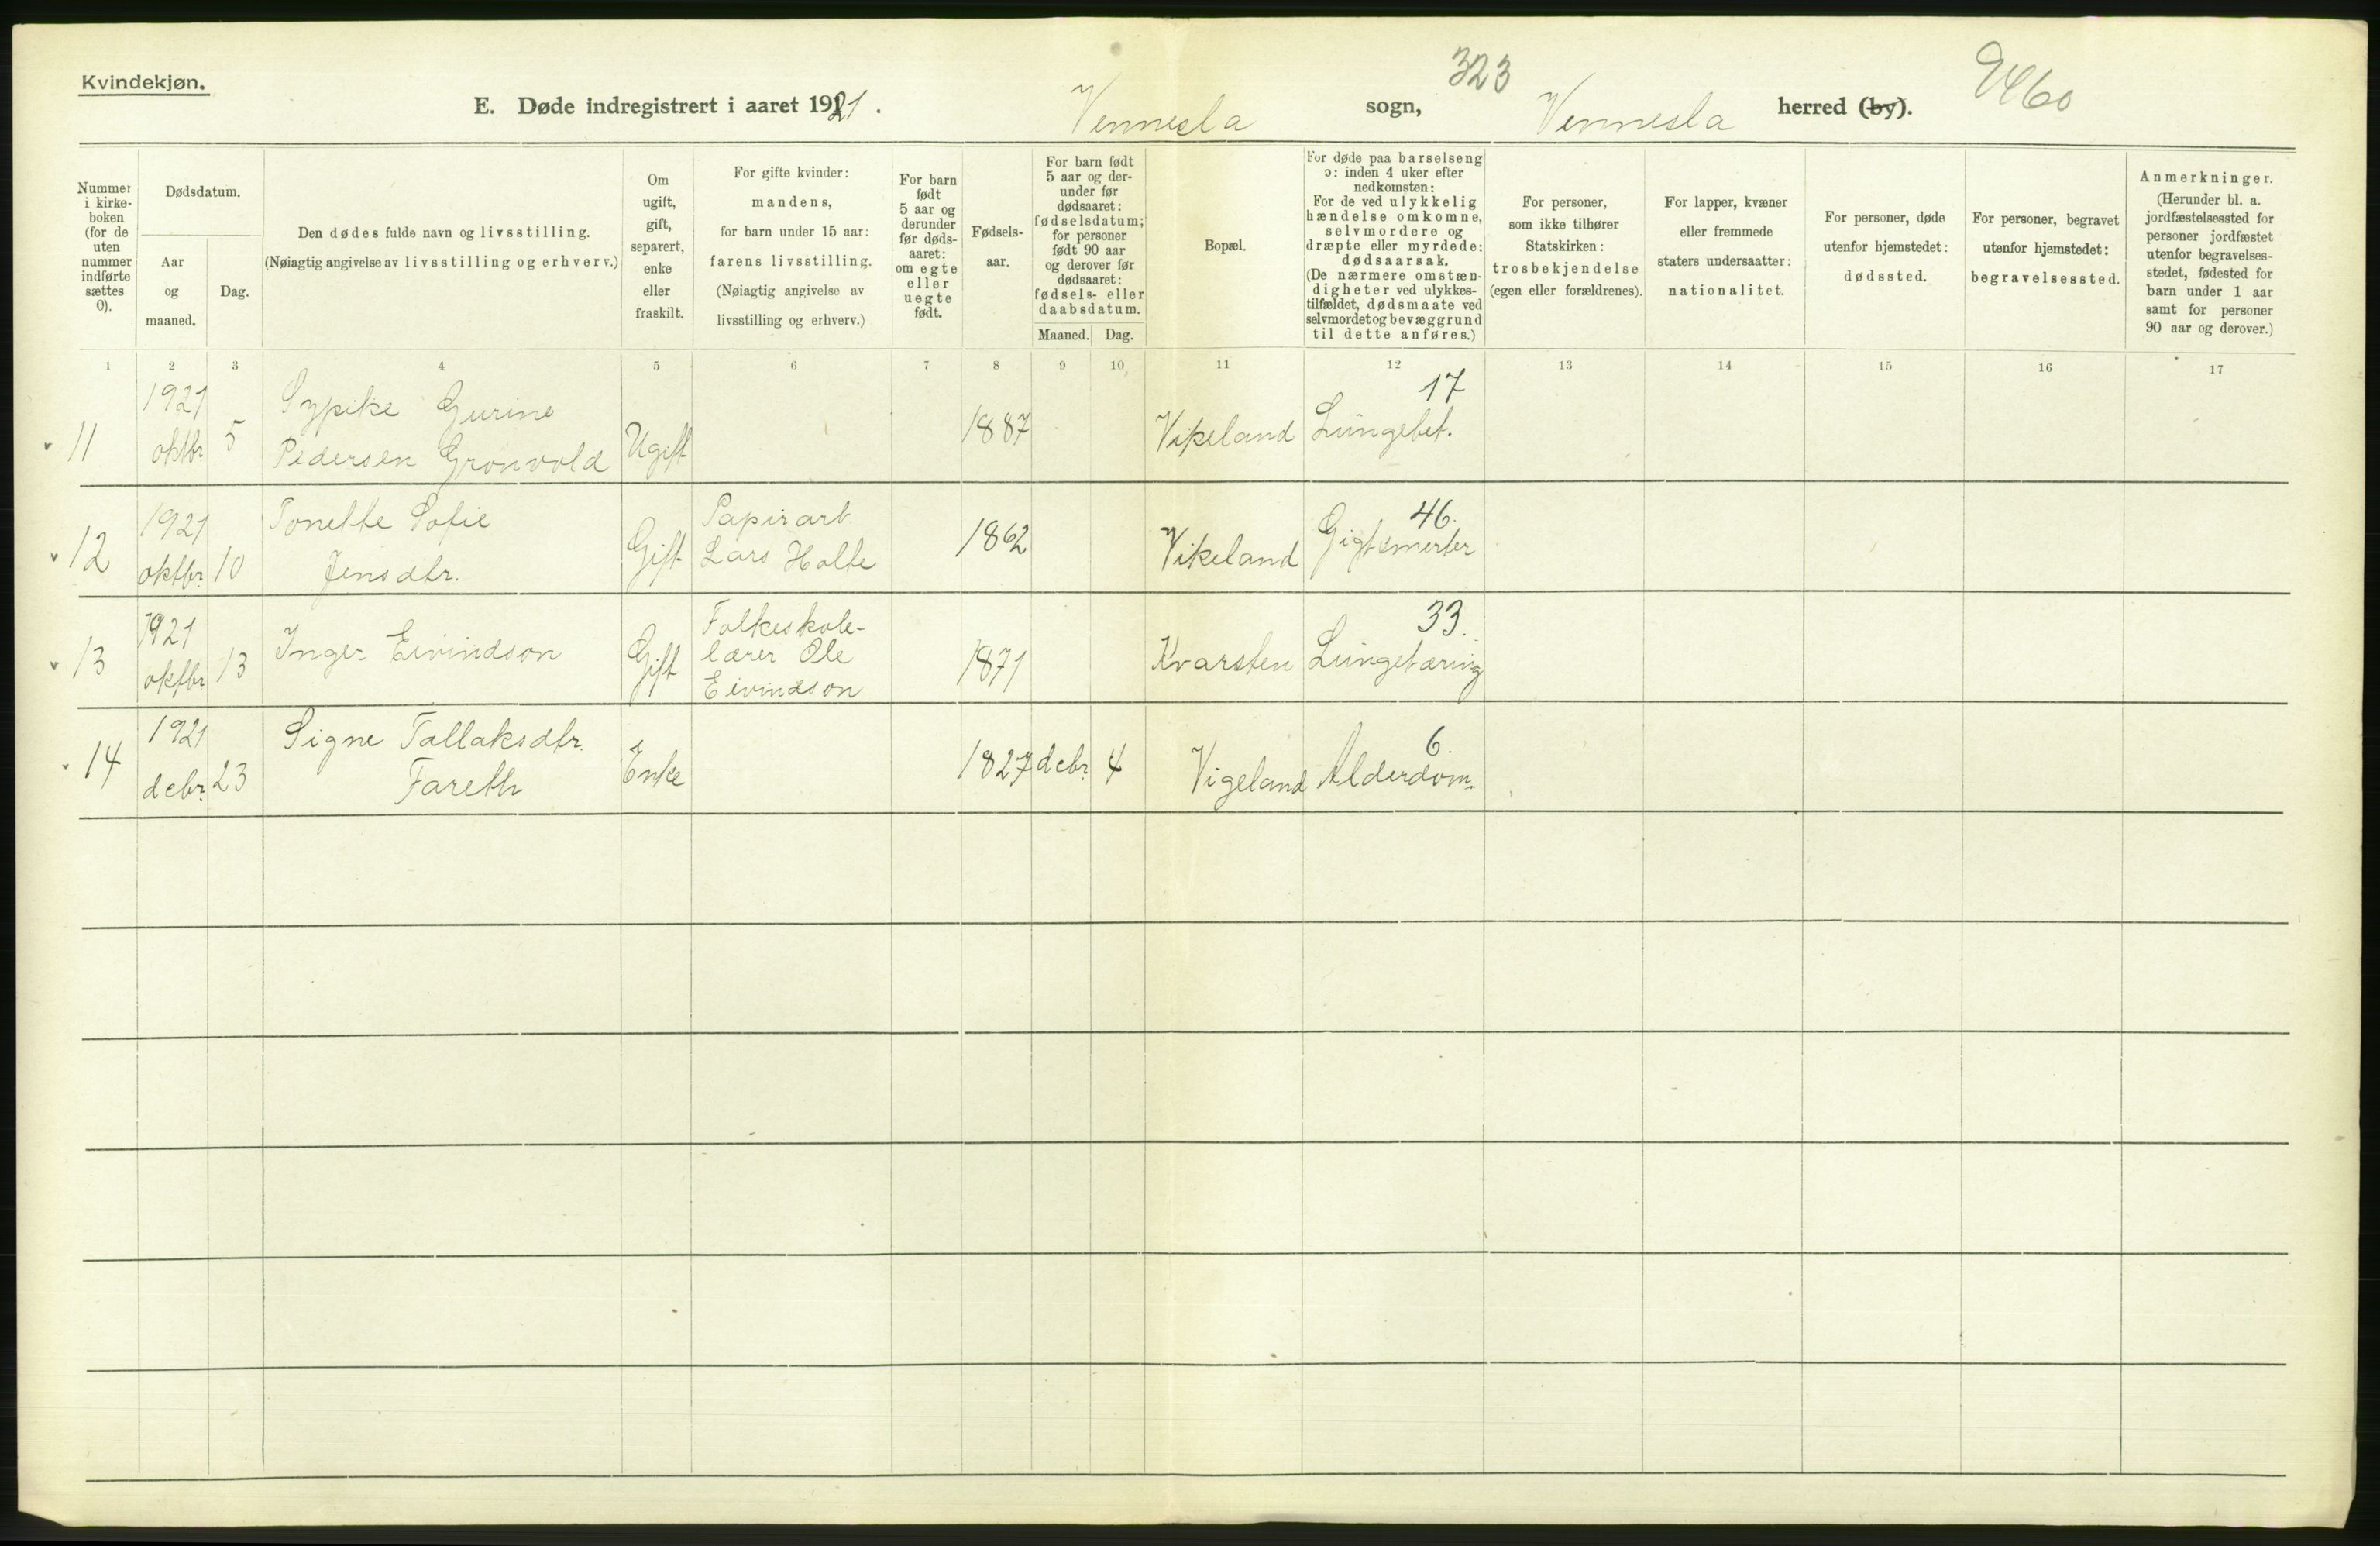 Kvindekjøn.
E. Døde indregistrert i aaret 1921.
Vennesla sogn,
323
Vennesla herred (by).
Nummer i kirkeboken (for de uten nummer indførte sættes 0).
Dødsdatum.
Aar og maaned.
Dag.
Den dødes fulde navn og livsstilling.
(Nøiagtig angivelse av livsstilling og erhverv.)
Om ugift, gift, separert, enke eller fraskilt.
For gifte kvinder: mandens, for barn under 15 aar: farens livsstilling. (Nøiagtig angivelse av livsstilling og erhverv.)
For barn født 5 aar og derunder før dødsaaret: om egte eller uegte født.
Fødselsaar.
For barn født 5 aar og derunder før dødsaaret: fødselsdatum; for personer født 90 aar og derover før dødsaaret: fødsels- eller daabsdatum.
Maaned. Dag.
Bopæl.
For døde paa barselseng ɔ: inden 4 uker efter nedkomsten: For de ved ulykkelig hændelse omkomne, selvmordere og dræpte eller myrdede: dødsaarsak. (De nærmere omstændigheter ved ulykkestilfældet, dødsmaate ved selvmordet og bevæggrund til dette anføres.)
For personer, som ikke tilhører Statskirken: trosbekjendelse (egen eller forældrenes).
For lapper, kvæner eller fremmede staters undersaatter: nationalitet.
For personer, døde utenfor hjemstedet: dødssted.
For personer, begravet utenfor hjemstedet: begravelsessted.
Anmerkninger. (Herunder bl. a. jordfæstelsessted for personer jordfæstet utenfor begravelsesstedet, fødested for barn under 1 aar samt for personer 90 aar og derover.)
1 2 3 4 5 6 7 8 9 10 11 12 13 14 15 16 17
11 1921 oktbr. 5 Sypike Gurine Pedersen Gronvold Ugift 1887 Vikeland 17 Lungebet.
12 1921 oktbr. 10 Tonette Sofie Jensdtr. Gift Papirarb. Lars Holte 1862 Vikeland 46. Gigtsmerter
13 1921 oktbr 13 Inger Eivindson Gift Folkeskolelærer Ole Eivindson 1871 Kvarsten 33. Lungetæring
14 1921 debr. 23 Signe Tallaksdtr. Fareth Enke 1827 debr. 4 Vigeland 6. Alderdom.